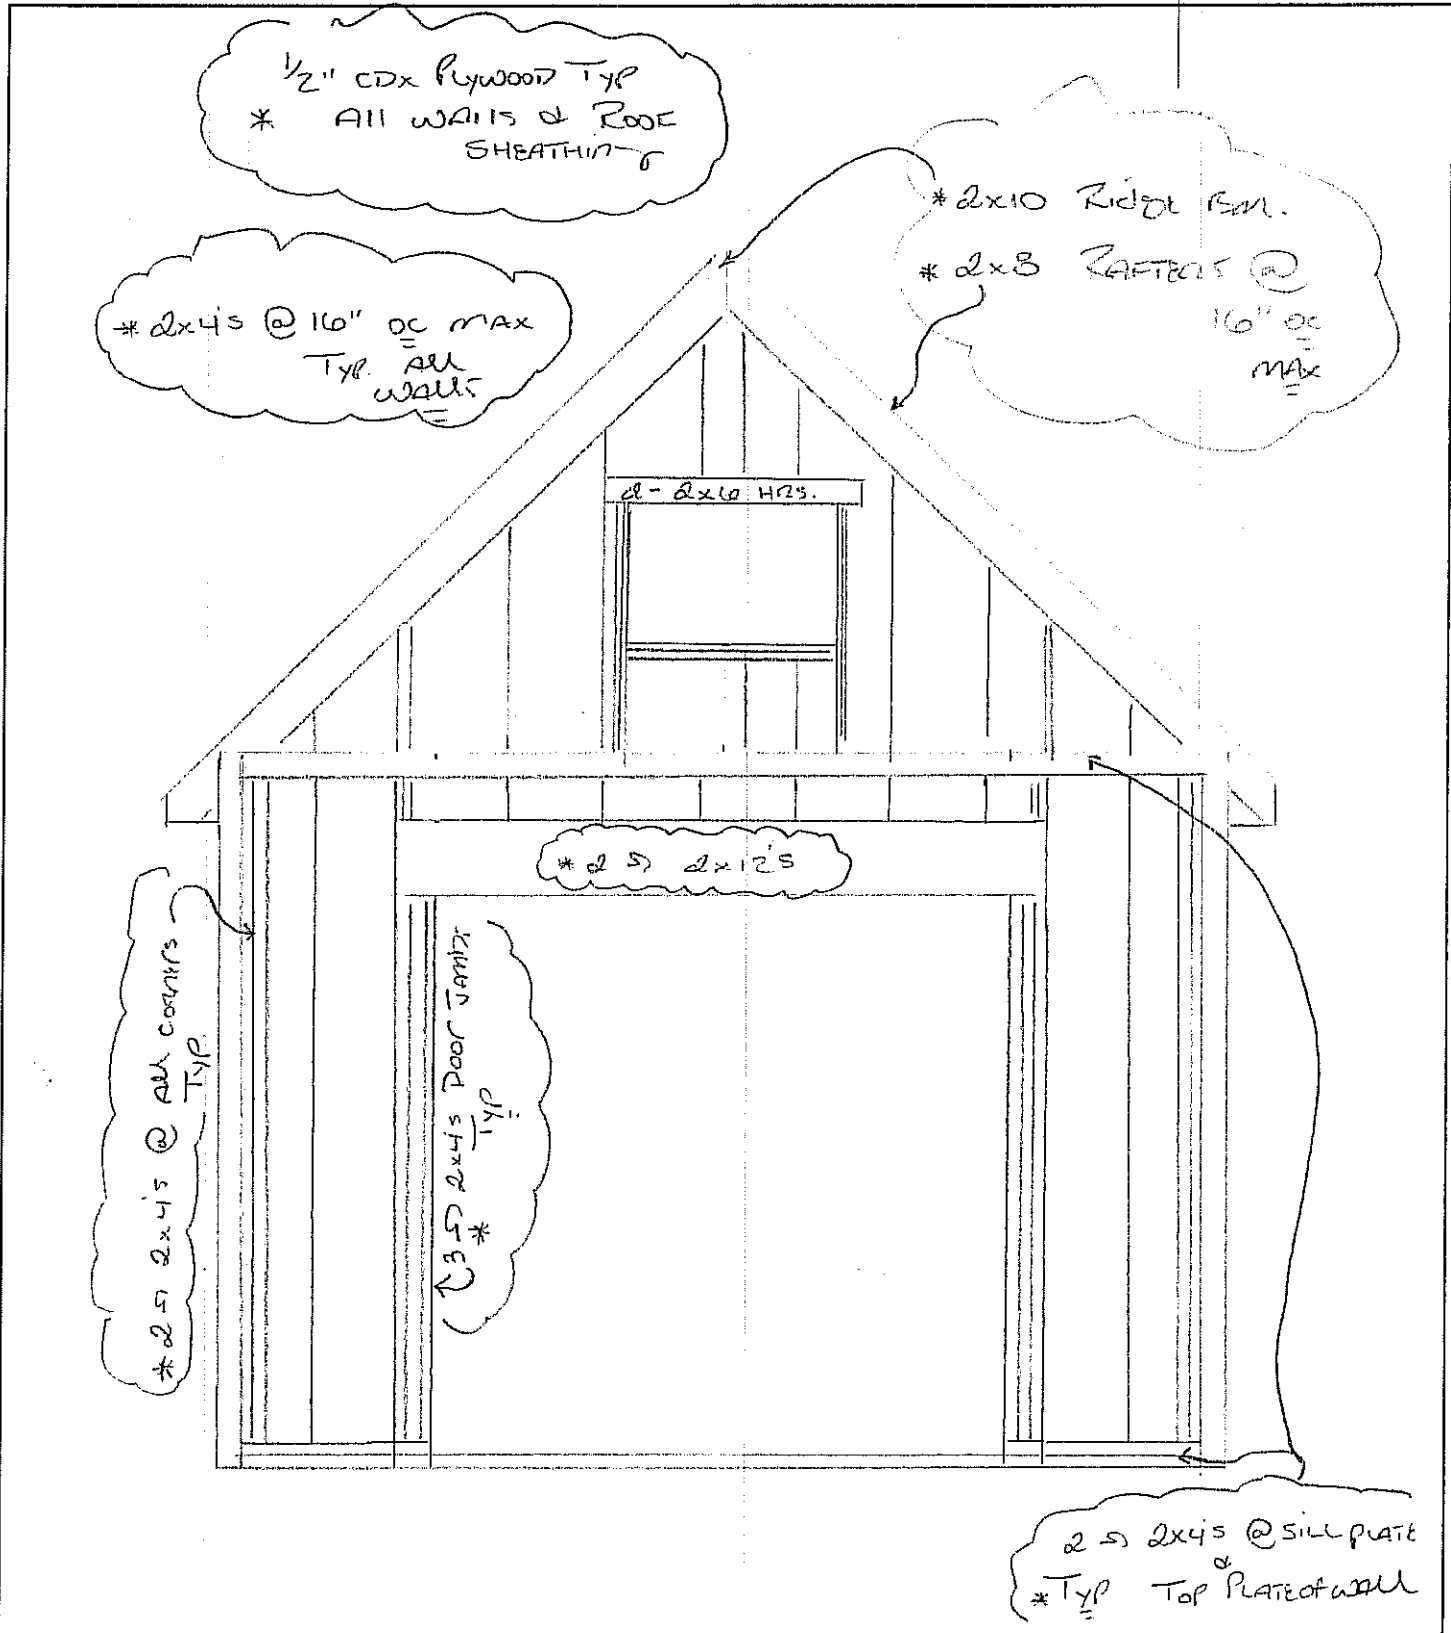 1/2" CDX PLYWOOD TYP
* All WAlls & ROOF
SHEATHING
* 2x10 Ridge BM.
* 2x8 RAFTERS @
16" OC
MAX
* 2x4's @ 16" OC MAX
TYP. All
WALLS
2 - 2x6 HDRS.
* 2 2x12's
* 2 2x4's @ All CORNERS
TYP.
3 2x4's DOOR JAMB.
* TYP
2 2x4's @ SILL PLATE
&
* TYP TOP PLATE OF WALL